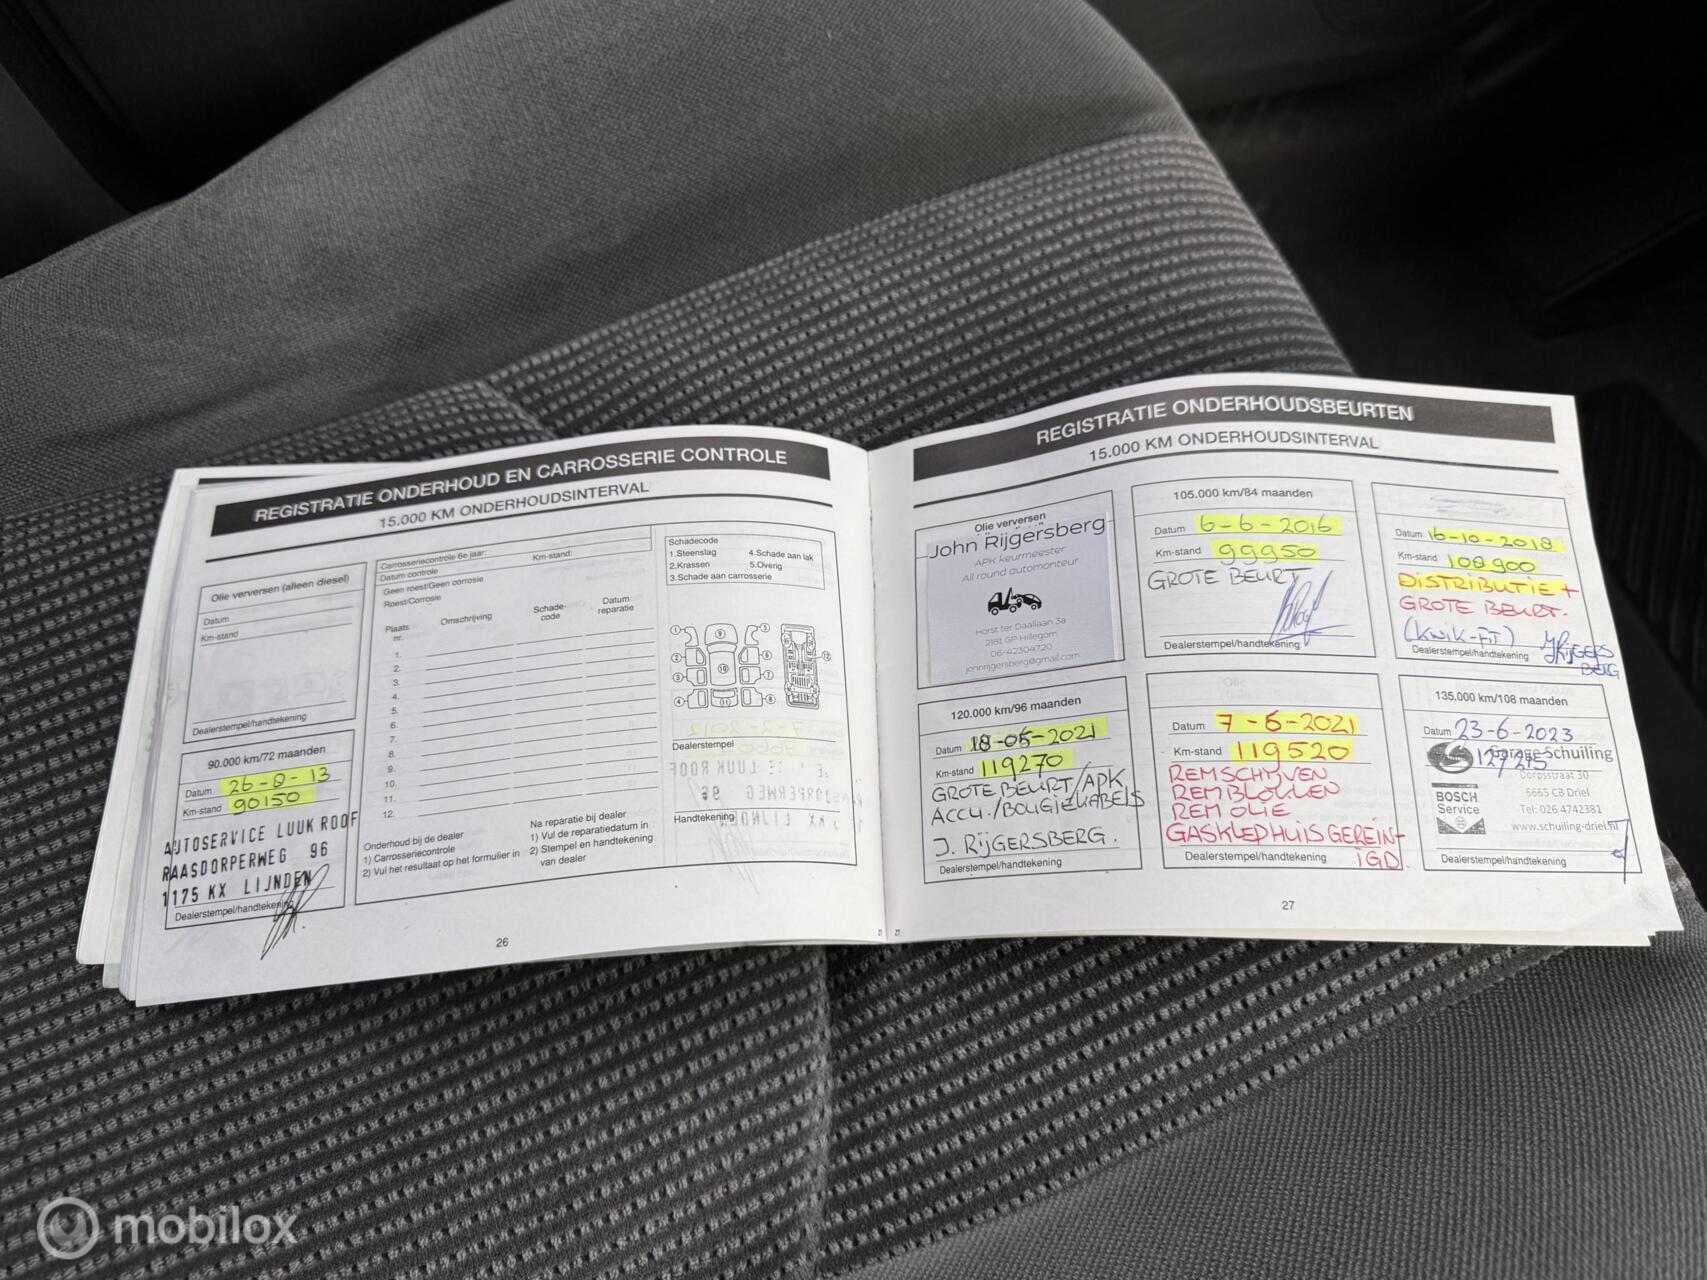 REGISTRATIE ONDERHOUD EN CARROSSERIE CONTROLE
15.000 KM ONDERHOUDSINTERVAL
Olie verversen (alleen diesel)
Datum
Km-stand
Dealerstempel/handtekening
90.000 km/72 maanden
Datum 26-8-13
Km-stand 90150
AUTOSERVICE LUUK ROOF
RAASDORPERWEG 96
1175 KX LIJNDEN
Dealerstempel/handtekening
Carrosseriecontrole 6e jaar:
Km-stand:
Datum controle
Geen roest/Geen corrosie
Roest/Corrosie
Plaats nr.
Omschrijving
Schade-code
Datum reparatie
1.
2.
3.
4.
5.
6.
7.
8.
9.
10.
11.
12.
Onderhoud bij de dealer
1) Carrosseriecontrole
2) Vul het resultaat op het formulier in
Na reparatie bij dealer
1) Vul de reparatiedatum in
2) Stempel en handtekening
van dealer
Schadecode
1.Steenslag 4.Schade aan lak
2.Krassen 5.Overig
3.Schade aan carrosserie
1
2
3
4
5
6
7
8
9
10
11
12
Dealerstempel
Handtekening
26
REGISTRATIE ONDERHOUDSBEURTEN
15.000 KM ONDERHOUDSINTERVAL
Olie verversen
John Rijgersberg
APK keurmeester
All round automonteur
Horst ter Daallaan 3a
2181 GP Hillegom
06-42304720
johnrijgersberg@gmail.com
105.000 km/84 maanden
Datum 6-6-2016
Km-stand 99950
GROTE BEURT
Dealerstempel/handtekening
Datum 16-10-2018
Km-stand 108900
DISTRIBUTIE +
GROTE BEURT.
(KWIK-FIT)
JRIJGERSBERG
Dealerstempel/handtekening
120.000 km/96 maanden
Datum 18-05-2021
Km-stand 119270
GROTE BEURT/APK
ACCU./BOUGIEKABELS
J. RIJGERSBERG.
Dealerstempel/handtekening
Olie
Datum 7-6-2021
Km-stand 119520
REMSCHIJVEN
REMBLOKKEN
REM OLIE
GASKLEPHUIS GEREIN-
IGD.
Dealerstempel/handtekening
135.000 km/108 maanden
Datum 23-6-2023
127215
Garage Schuiling
Dorpsstraat 30
6665 CB Driel
Tel: 026 4742381
www.schuiling-driel.nl
BOSCH
Service
Dealerstempel/handtekening
27
mobilox